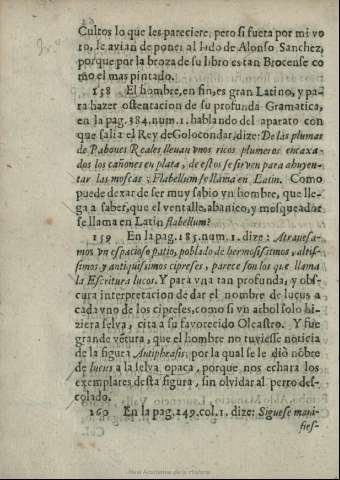 Cultos lo que les pareciere, pero si fuera por mi vo
to, le avian de poner al lado de Alonso Sanchez,
porque por la broza de su libro es tan Brocense co
mo el mas pintado.
158 El hombre, en fin, es gran Latino, y pa
ra hazer ostentacion de su profunda Gramatica,
en la pag. 384. num. 1. hablando del aparato con
que salia el Rey de Golocondar, dize: De las plumas
de Pabones Reales lleuan vnos ricos plumeros encaxa-
dos los cañones en plata, de estos se sirven para abuyen-
tar las moscas: Flabellum se llama en Latin. Como
puede dexar de ser muy sabio vn hombre, que lle-
ga a saber, que el ventalle, abanico, y mosqueador
se llama en Latin flabellum?
159 En la pag. 185. num. 1. dize: Atravesa-
mos vn espacioso patio, poblado de hermosissimos, altis-
simos y antiquissimos cipreses, parece son los que llama
la Escritura lucos. Y para vna tan profunda, y obs-
cura interpretacion de dar el nombre de lucus a
cada vno de los cipreses, como si vn arbol solo hi-
ziera selva, cita a su favorecido Oleastro. Y fue
grande vẽtura, que el hombre no tuviesse noticia
de la figura Antiphrasis, por la qual se le diò nõbre
de lucus a la selva opaca, porque nos echara los
exemplares desta figura, sin olvidar al perro des-
colado.
160 En la pag. 249. col. 1. dize: Siguese mani-
fies-
Real Academia de la Historia